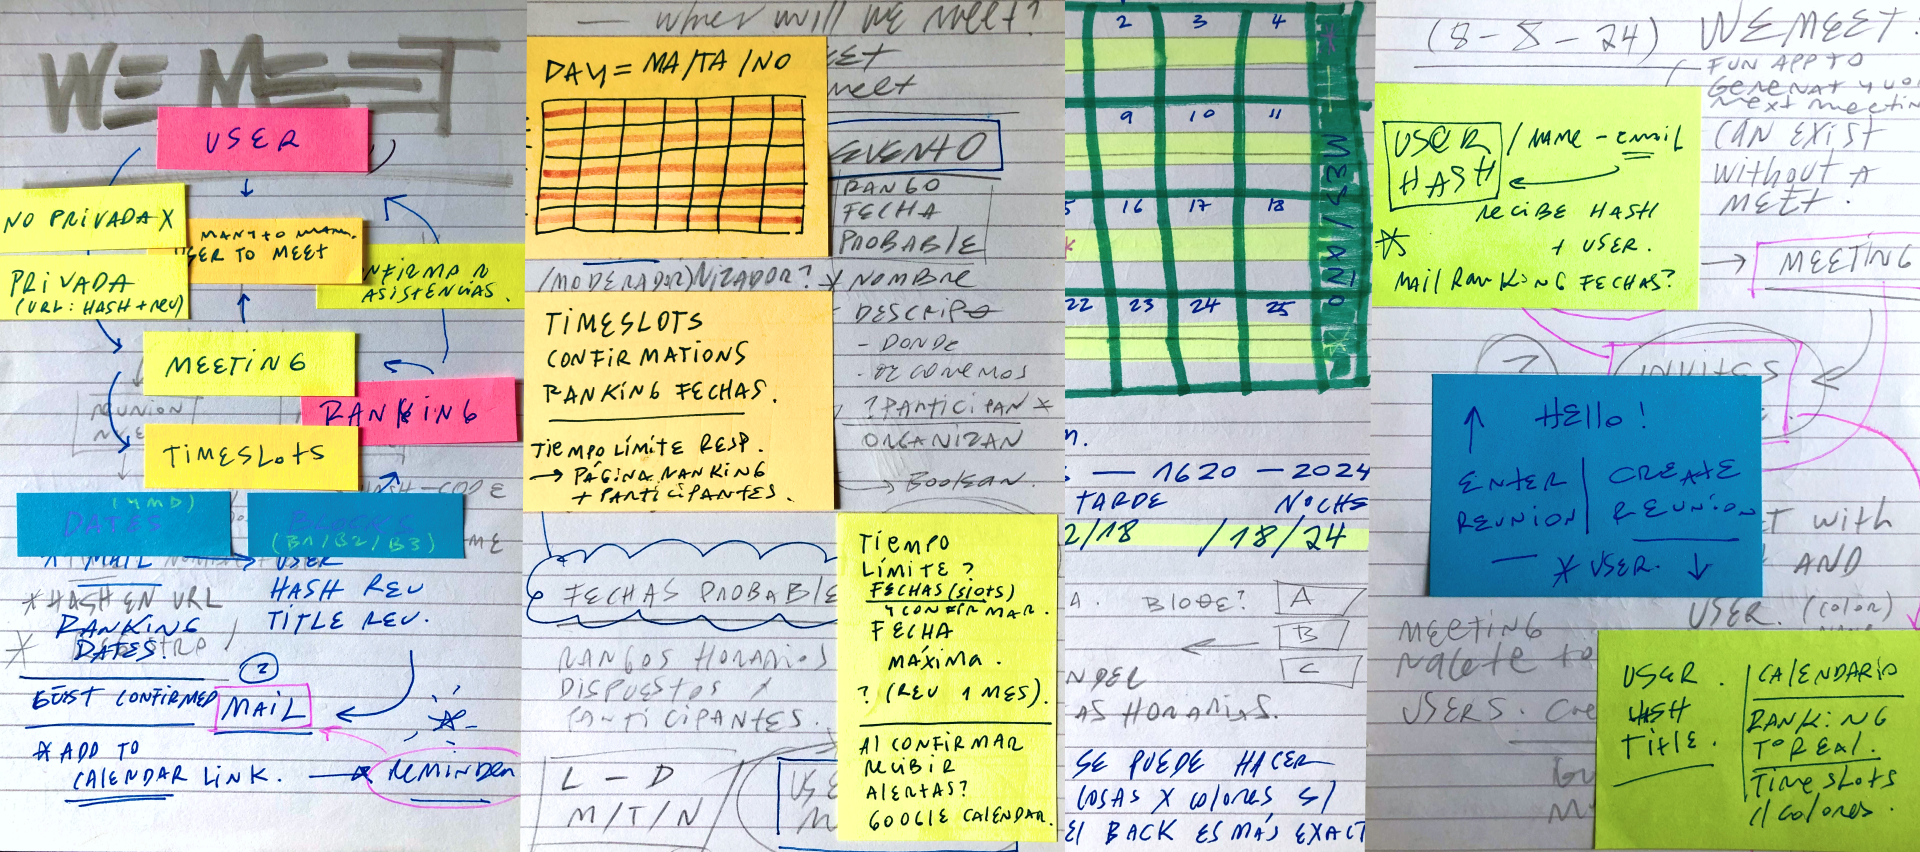 WE MEET
USER
NO PRIVADA X
MANY TO MANY
USER TO MEET
PRIVADA
(URL: HASH + REU)
CONFIRMAR
ASISTENCIAS.
MEETING
RANKING
REUNION
TIMESLOTS
HASH-CODE
DATES
(YMD)
BLOCKS
(B1/B2/B3)
* MAIL
* HASH EN URL
RANKING
DATES.
USER
HASH REU
TITLE REU.
2
GUEST CONFIRMED
MAIL
* ADD TO
CALENDAR LINK.
REMINDER
— WHEN WILL WE MEET?
DAY = MA/TA/NO
MEET
EVENTO
RANGO
FECHA
PROBABLE
/MODERADOR)NIZADOR?
* NOMBRE
DESCRIPO
- DONDE
- OZ CONEMOS
? PARTICIPAN *
ORGANIZAN
→ BOOLEAN.
TIMESLOTS
CONFIRMATIONS
RANKING FECHAS.
TIEMPO LÍMITE RESP.
→ PÁGINA RANKING
+ PARTICIPANTES.
FECHAS PROBABLE
RANGOS HORARIOS
DISPUESTOS X
PARTICIPANTES.
L — D
M/T/N
USE
TIEMPO
LÍMITE?
FECHAS (SLOTS)
Y CONFIRMAR.
FECHA
MÁXIMA.
? (REU 1 MES).
AL CONFIRMAR
RECIBIR
ALERTAS?
GOOGLE CALENDAR.
2 3 4
9 10 11
16 17 18
22 23 24 25
MES/HORIZON
— 1620 — 2024
TARDE NOCHE
2/18 /18/24
A. BLOQUE? A
B
C
NDER
AS HORARIAS.
SE PUEDE HACER
COSAS X COLORES S/
EL BACK ES MÁS EXACT
(8-8-24)
WEMEET:
FUN APP TO
GENERAT YOU
NEXT MEETIN
CAN EXIST
WITHOUT A
MEET.
USER / NAME - EMAIL
HASH
RECIBE HASH
+ USER.
*
MAIL RANKING FECHAS?
→ MEETING
?
INVITES
HELLO!
ENTER | CREATE
REUNION | REUNION
— * USER. ↓
T WITH
AND
USER. (COLOR)
MEETING
USERS. CRE
USER.
HASH
TITLE.
CALENDARIO
RANKING
TO REAL.
TIMESLOTS
// COLORES.